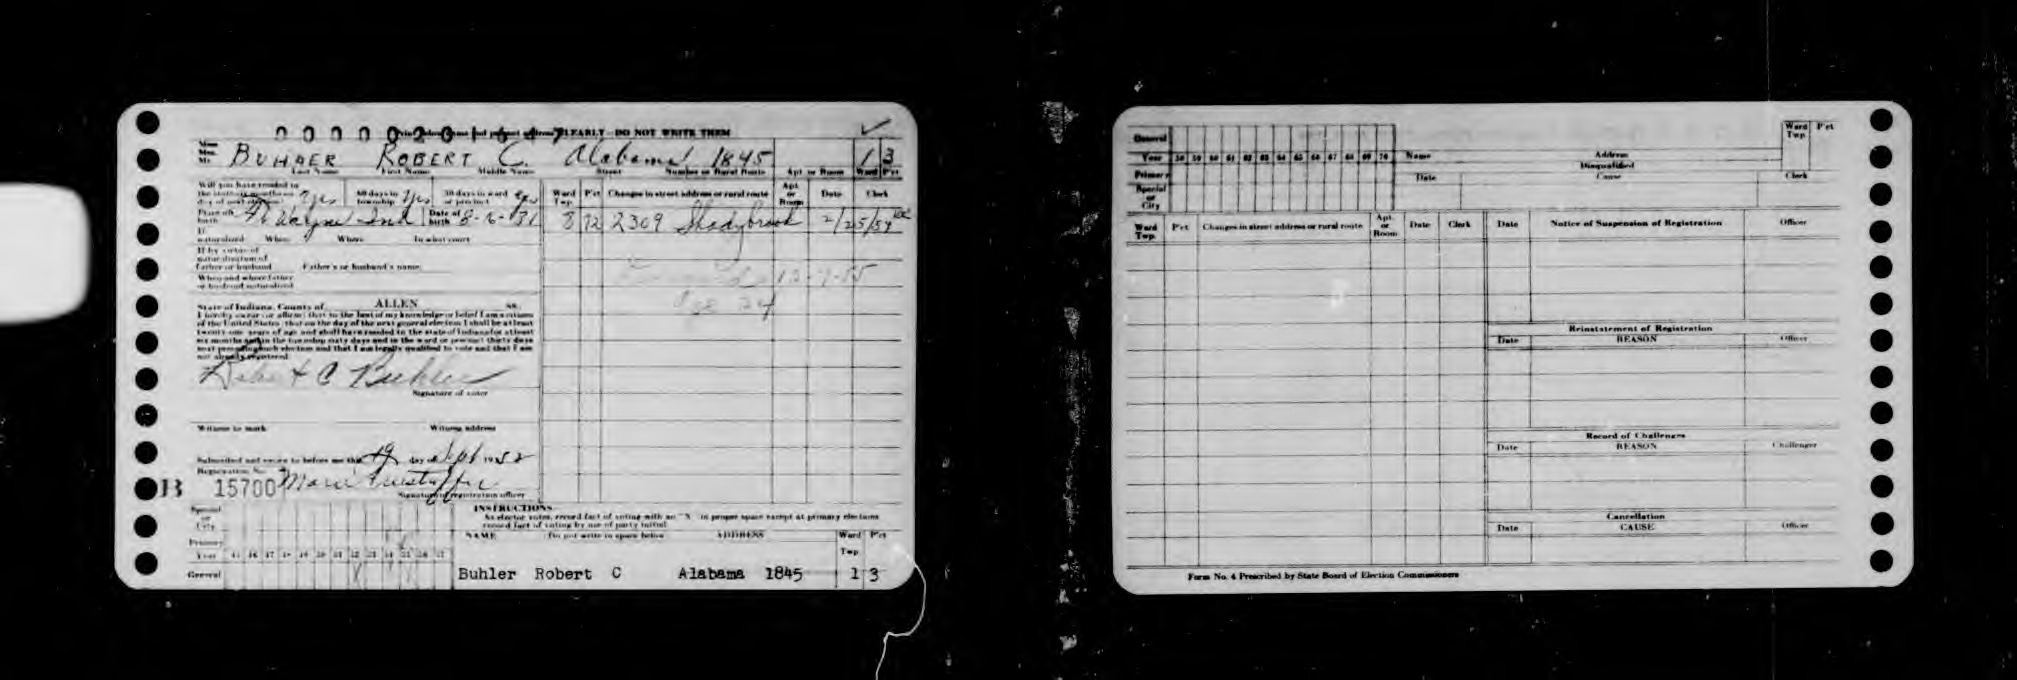 0000020164
CLEARLY - DO NOT WRITE THEM
BUHLER ROBERT C. Alabama 1845 1 3
Last Name First Name Middle Name Street Number or Rural Route Apt or Room Ward P'ct
Will you have resided in
the state six months on day of next election yes 60 days in township yes 30 days in ward or precinct yes
Place of birth Ft Wayne Ind Date of birth 8-6-31
If naturalized When Where In what court
If by virtue of
naturalization of
father or husband Father's or husband's name
When and where father
or husband naturalized
State of Indiana, County of ALLEN ss.
I hereby swear or affirm that to the best of my knowledge or belief I am a citizen
of the United States; that on the day of the next general election I shall be at least
twenty-one years of age and shall have resided in the state of Indiana for at least
six months and in the township sixty days and in the ward or precinct thirty days
next preceding such election and that I am legally qualified to vote and that I am
not already registered.
Robert C Buhler
Signature of voter
Witness to mark Witness address
Subscribed and sworn to before me this 19 day of Sept 1952
Registration No.
B 15700 Marie
Signature of registration officer
Ward Twp. P'ct Changes in street address or rural route Apt or Room Date Clerk
8 72 2309 Shadybrook 2/25/54
12-7-55
Special or City
Primary
Year 45 46 47 48 49 50 51 52 53 54 55 56 57
General
INSTRUCTIONS
As elector votes, record fact of voting with an "X" in proper space except at primary elections
record fact of voting by use of party initial
NAME Do not write in space below ADDRESS Ward Twp P'ct
Buhler Robert C Alabama 1845 1 3
General
Year 58 59 60 61 62 63 64 65 66 67 68 69 70
Primary
Special or City
Name Address Ward Twp P'ct
Disqualified
Date Cause Clerk
Ward Twp. P'ct Changes in street address or rural route Apt. or Room Date Clerk
Date Notice of Suspension of Registration Officer
Reinstatement of Registration
Date REASON Officer
Record of Challenges
Date REASON Challenger
Cancellation
Date CAUSE Officer
Form No. 4 Prescribed by State Board of Election Commissioners